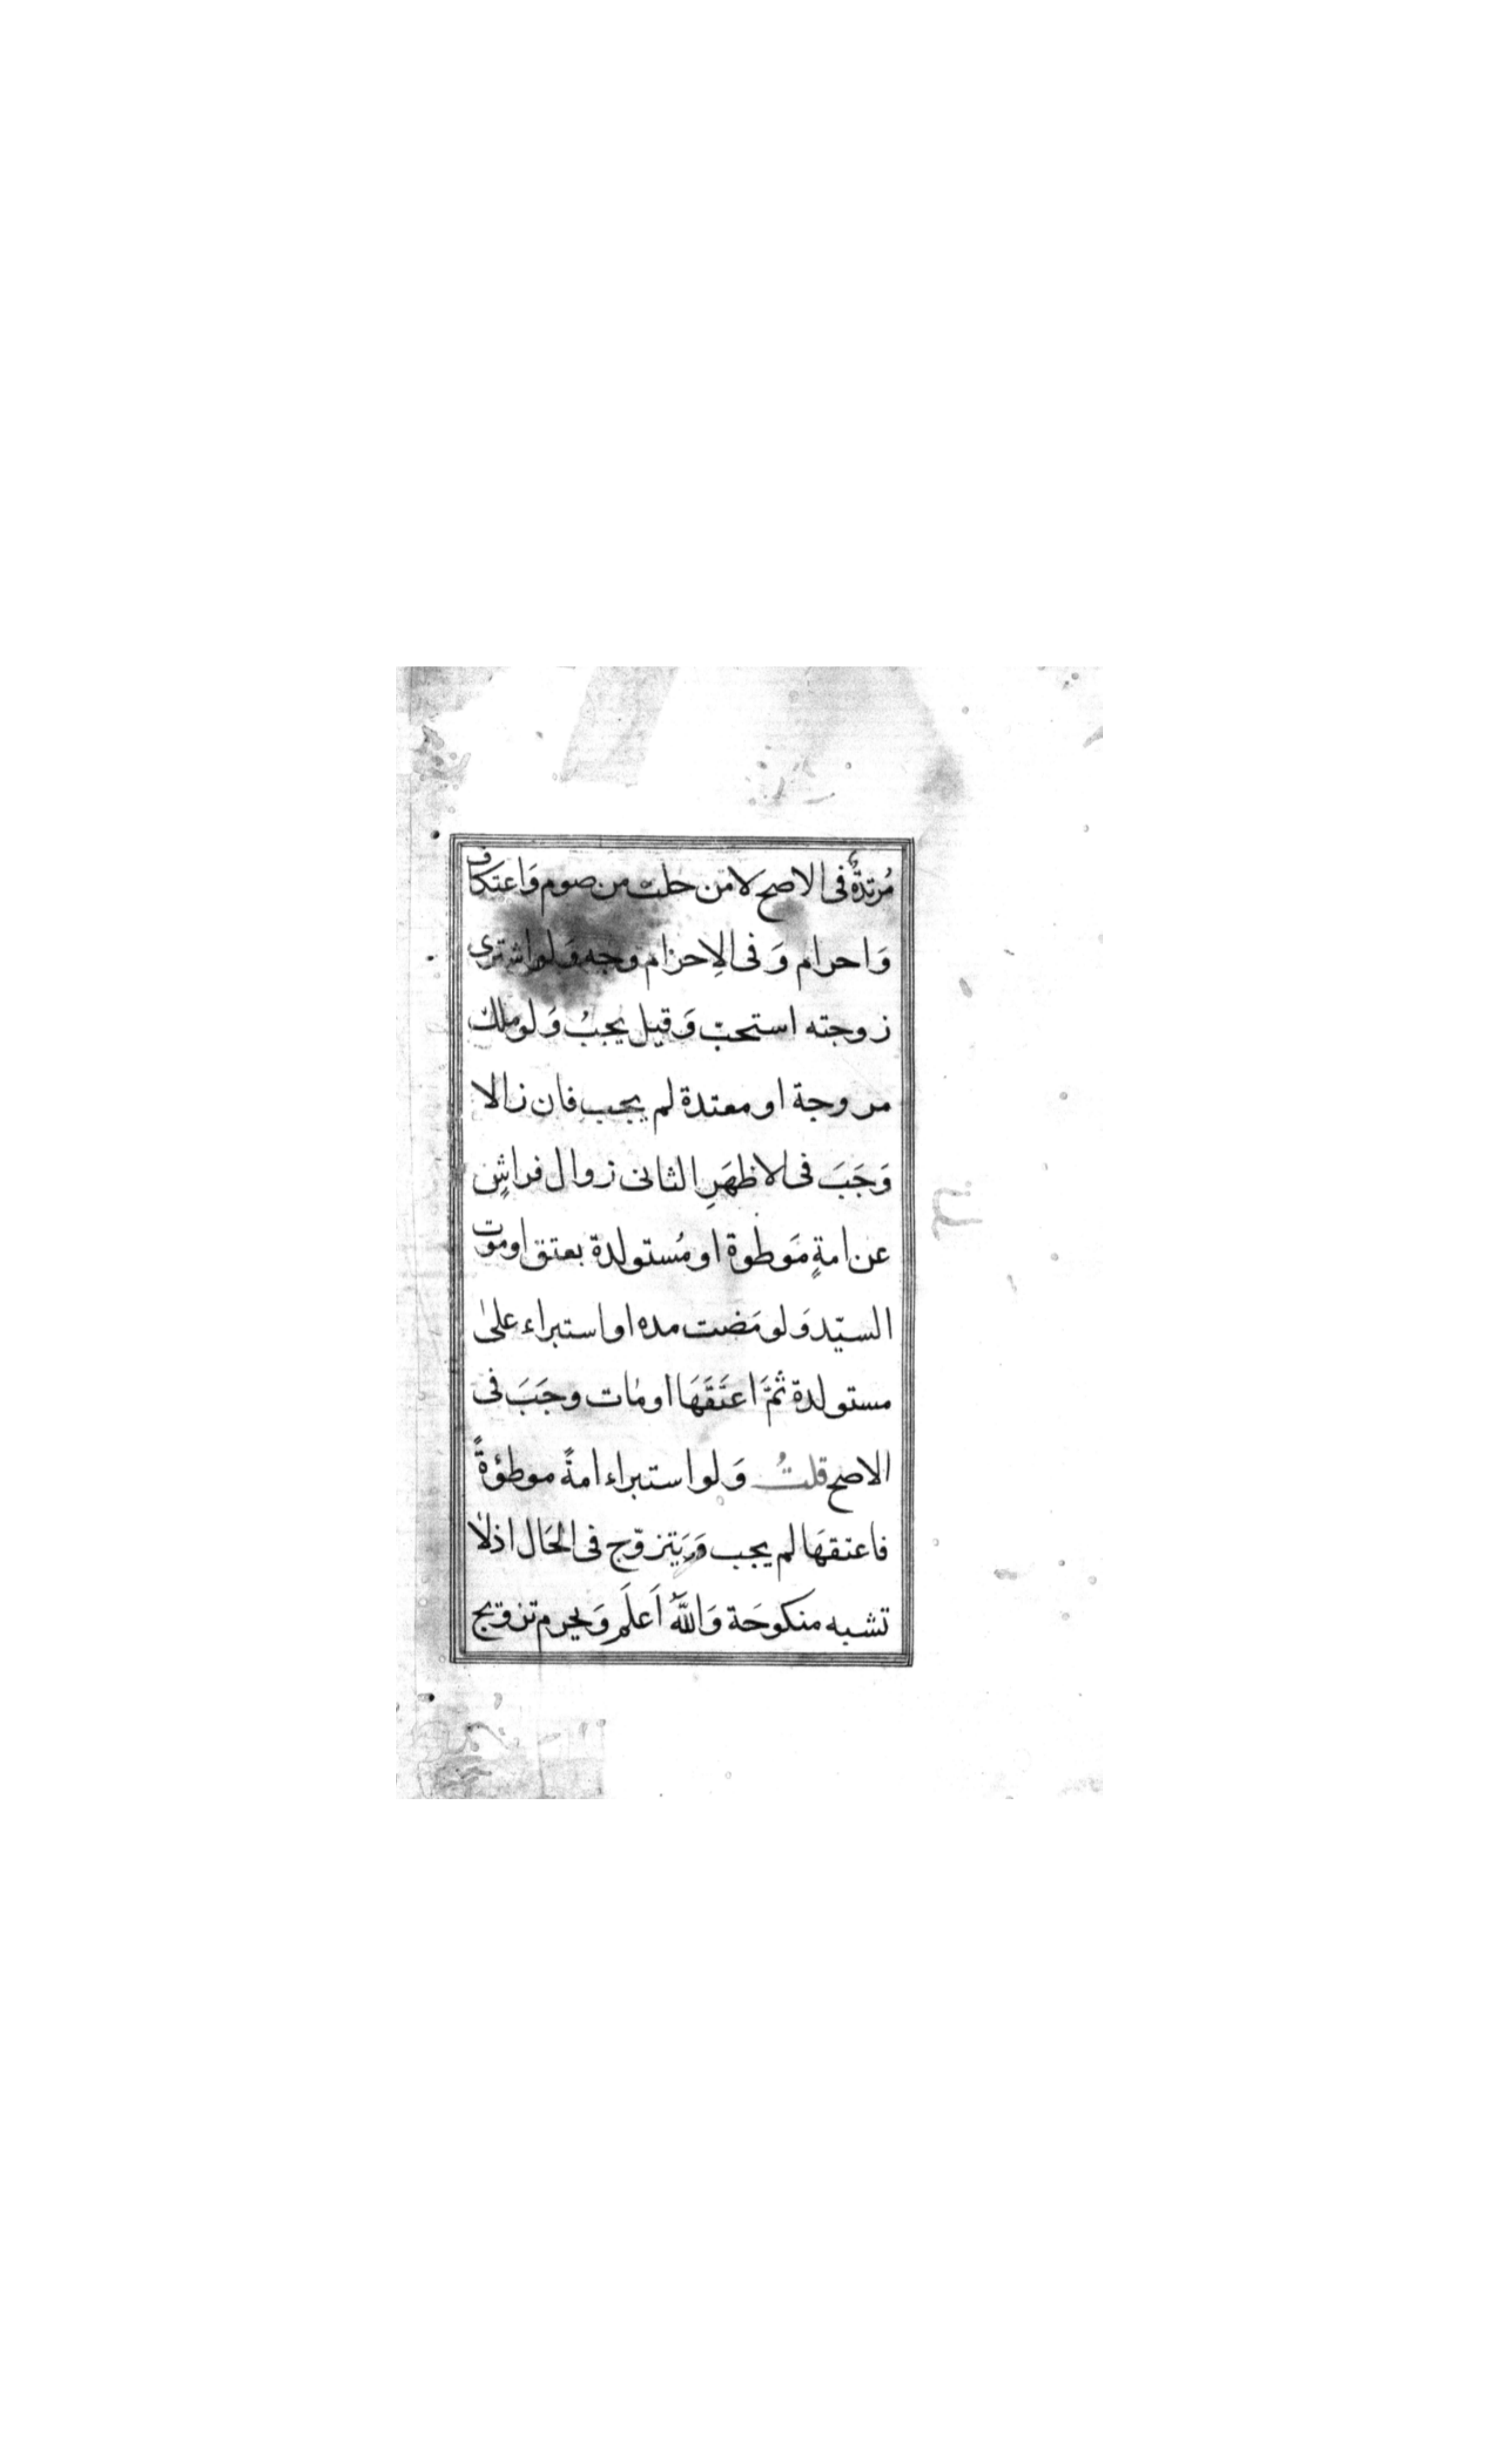 مُرتدةٌ فى الاصح لا من حلت من صوم وَاعتكاف
وَاحرام وَفى الاِحرام وجه وَلو اشترى
زوجته استحبّ وَقيل يجبُ وَلو ملك
مزوجة او معتدة لم يجب فان زالا
وَجَبَ فى الاظهَرِ الثانى زوال فراشٍ
عن امةٍ مَوطوة او مُستولدة بعتق او موت
السيّد وَلو مَضت مده او استبراء علىٰ
مستولدة ثمَّ اعتَقَهَا او مات وجَبَ فى
الاصح قلتُ وَلو استبراء امةً موطؤةً
فاعتقهَا لم يجب وَيَتزوّج فى الحَال اذ لا
تشبه منكوحَة وَاللّٰه اَعلَم وَيحرم تزويج